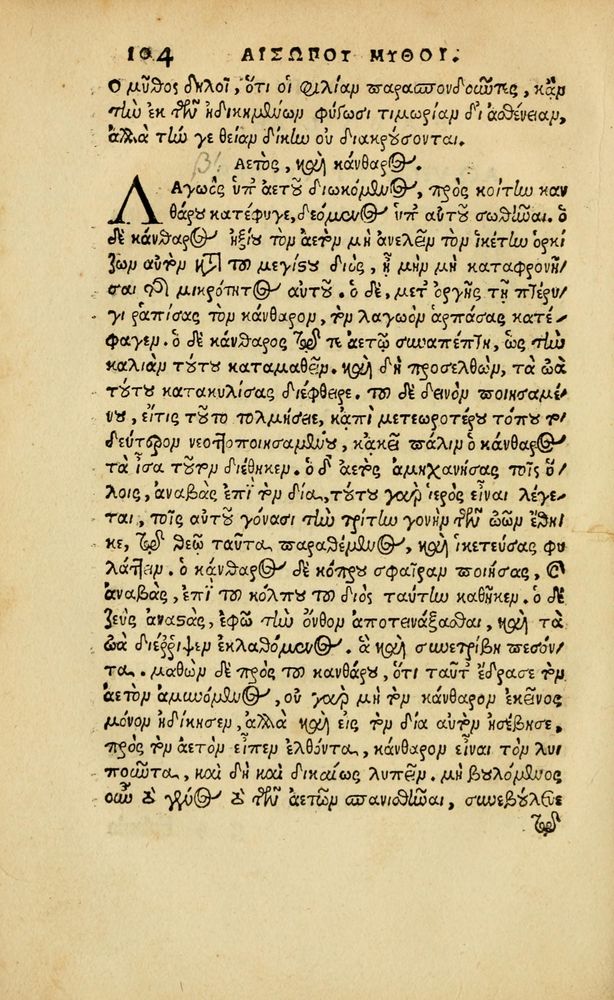 104 ΑΙΣΩΠΟΥ ΜΥΘΟΙ.
Ο μῦθος δηλοῖ, ὅτι οἱ φιλίαν παρασπονδοῦντες, κἂν
τὴν ἐκ τῶν ἠδικημένων φύγωσι τιμωρίαν δι ἀσθένειαν,
ἀλλὰ τήν γε θείαν δίκην οὐ διακρούσονται.
β΄ Αετὸς, καὶ κάνθαρος.
Λαγωὸς ὑπ' ἀετοῦ διωκόμενος, πρὸς κοίτην καν
θάρου κατέφυγε, δεόμενος ὑπ' αὐτοῦ σωθῆναι. ὁ
δὲ κάνθαρος ἠξίου τὸν ἀετὸν μὴ ἀνελεῖν τὸν ἱκέτην ὁρκί
ζων αὐτὸν κατὰ τοῦ μεγίστου διὸς, ἦ μὴν μὴ καταφρονῆ/
σαι τῆς μικρότητος αὐτοῦ. ὁ δὲ, μετ' ὀργῆς τῇ πτέρυ/
γι ῥαπίσας τὸν κάνθαρον, τὸν λαγωὸν ἁρπάσας κατέ/
φαγεν. ὁ δὲ κάνθαρος τῷ τε ἀετῷ συναπέπτη, ὡς τὴν
καλιὰν τούτου καταμαθεῖν. καὶ δὴ προσελθὼν, τὰ ὠὰ
τούτου κατακυλίσας διέφθειρε. τοῦ δὲ δεινὸν ποιησαμέ/
νου, εἴτις τοῦτο τολμήσειε, κἀπὶ μετεωροτέρου τόπου τὸ
δεύτερον νεοττοποιησαμένου, κἀκεῖ πάλιν ὁ κάνθαρος
τὰ ἶσα τοῦτον διέθηκεν. ὁ δ' ἀετὸς ἀμηχανήσας τοῖς ὅ/
λοις, ἀναβὰς ἐπὶ τὸν δία, τούτου γὰρ ἱερὸς εἶναι λέγε/
ται, τοῖς αὐτοῦ γόνασι τὴν τρίτην γονὴν τῶν ὠῶν ἔθη/
κε, τῷ θεῷ ταῦτα παραθέμενος, καὶ ἱκετεύσας φυ
λάττειν. ὁ κάνθαρος δὲ κόπρου σφαῖραν ποιήσας, καὶ
ἀναβὰς, ἐπὶ τοῦ κόλπου τοῦ διὸς ταύτην καθῆκεν. ὁ δὲ
ζεὺς ἀναστὰς, ἐφ' ᾧ τὴν ὄνθον ἀποτινάξασθαι, καὶ τὰ
ὠὰ διέῤῥιψεν ἐκλαθόμενος. ἃ καὶ συνετρίβη πεσόν/
τα. μαθὼν δὲ πρὸς τοῦ κανθάρου, ὅτι ταῦτ' ἔδρασε τὸν
ἀετὸν ἀμυνόμενος, οὐ γὰρ μὴ τὸν κάνθαρον ἐκεῖνος
μόνον ἠδίκησεν, ἀλλὰ καὶ εἰς τὸν δία αὐτὸν ἠσέβησε,
πρὸς τὸν ἀετὸν εἶπεν ἐλθόντα, κάνθαρον εἶναι τὸν λυ/
ποῦντα, καὶ δὴ καὶ δικαίως λυπεῖν. μὴ βουλόμενος
οὖν τὸ γένος τὸ τῶν ἀετῶν σπανισθῆναι, συνεβούλευε
τῷ